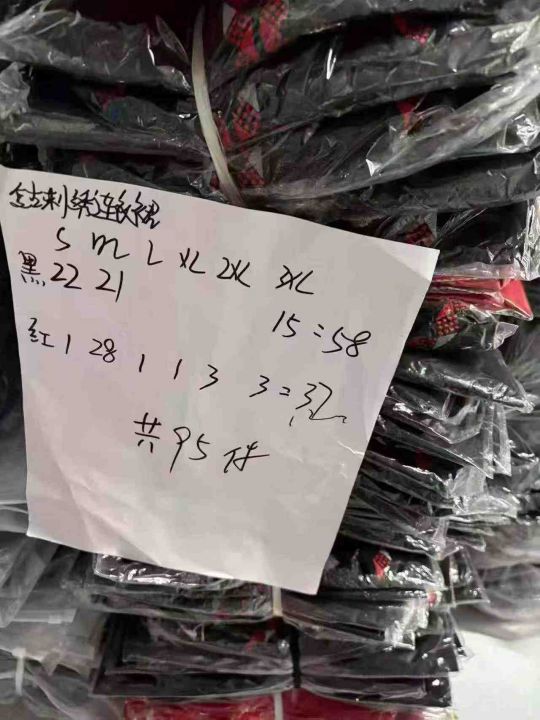 全立刺绣连衣裙
S M L XL 2XL 3XL
黑 22 21 15=58
红 1 28 1 1 3 3=37
共95件